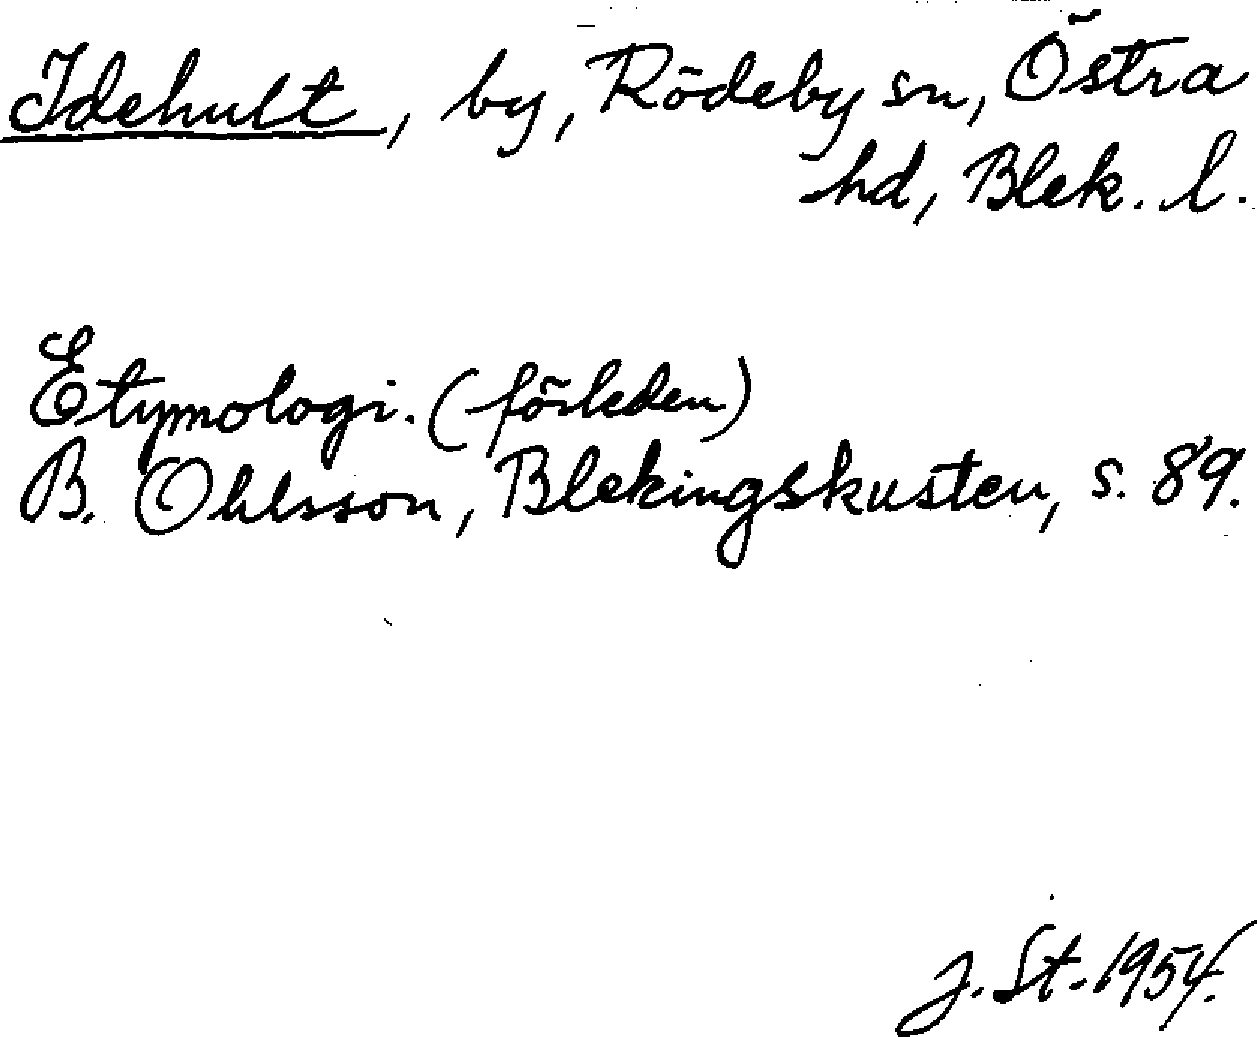 Idehult, by, Rödeby sn, Östra
hd, Blek. l.
Etymologi. (förleden)
B. Ohlsson, Blekingskusten, s. 89.
J. St. 1954.